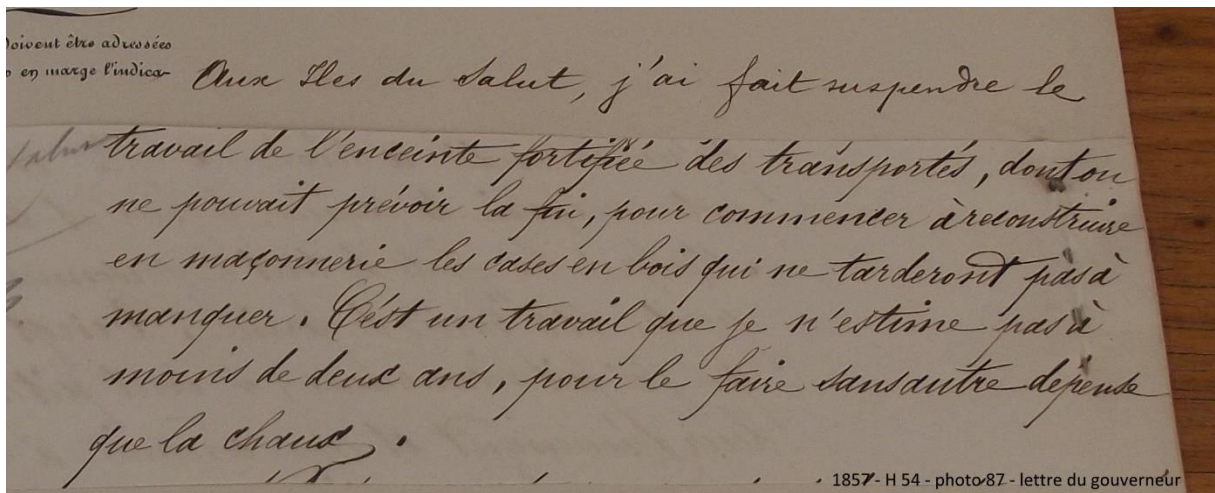 doivent être adressées
en marge l'indica-
Aux Iles du Salut, j'ai fait suspendre le
travail de l'enceinte fortifiée des transportés, dont on
ne pouvait prévoir la fin, pour commencer à reconstruire
en maçonnerie les cases en bois qui ne tarderont pas à
manquer. C'est un travail que je n'estime pas à
moins de deux ans, pour le faire sans autre dépense
que la chaux.
1857 - H 54 - photo 87 - lettre du gouverneur